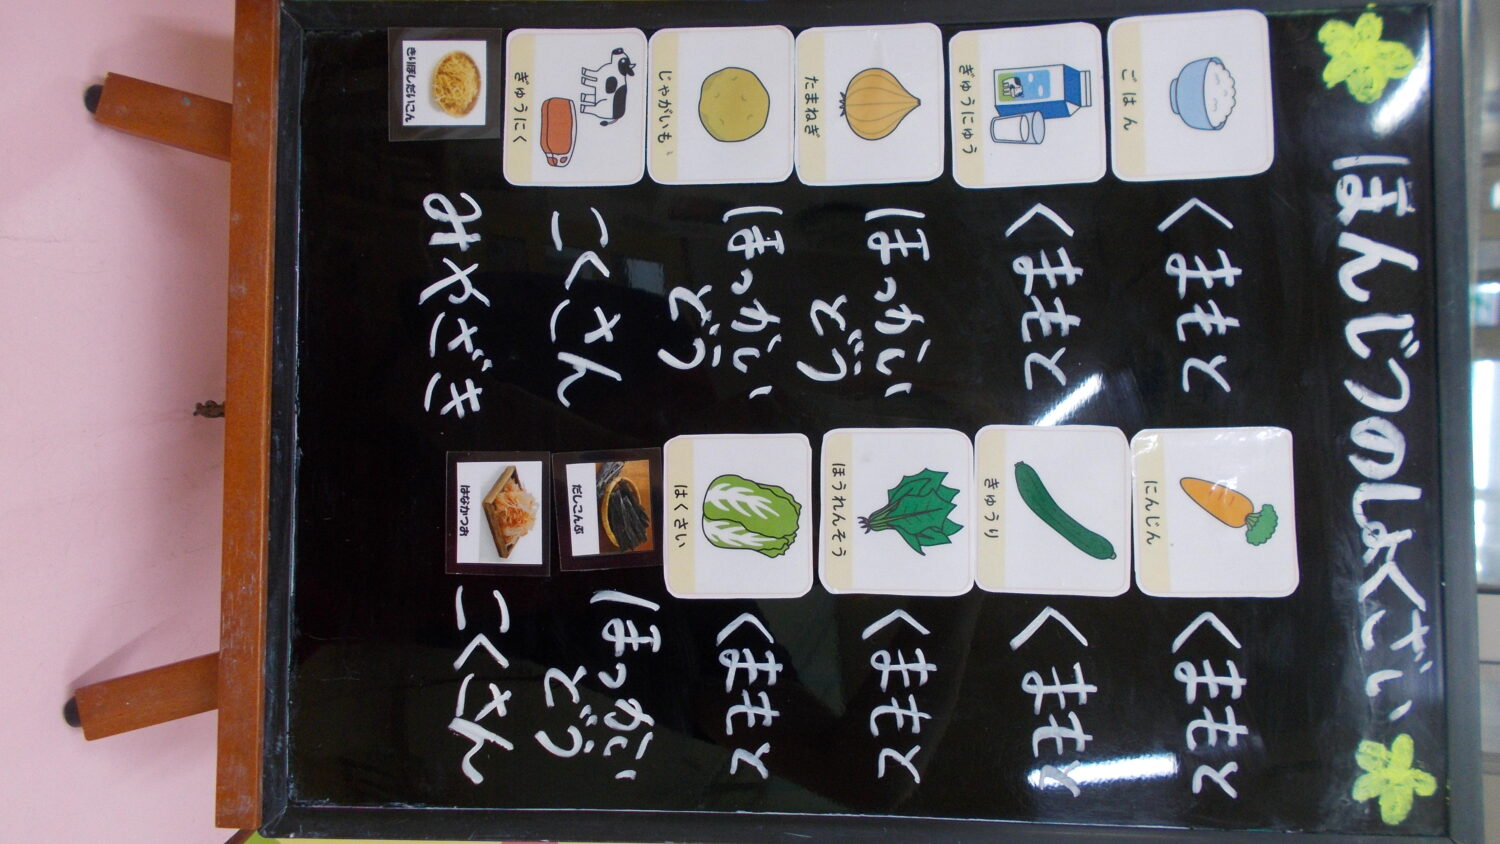 ほんじつのしょくざい
ごはん
くまもと
ぎゅうにゅう
くまもと
たまねぎ
ほっかい
どう
じゃがいも
ほっかい
どう
ぎゅうにく
こくさん
きりぼしだいこん
みやざき
にんじん
くまもと
きゅうり
くまもと
ほうれんそう
くまもと
はくさい
くまもと
だしこんぶ
ほっかい
どう
はなかつお
こくさん